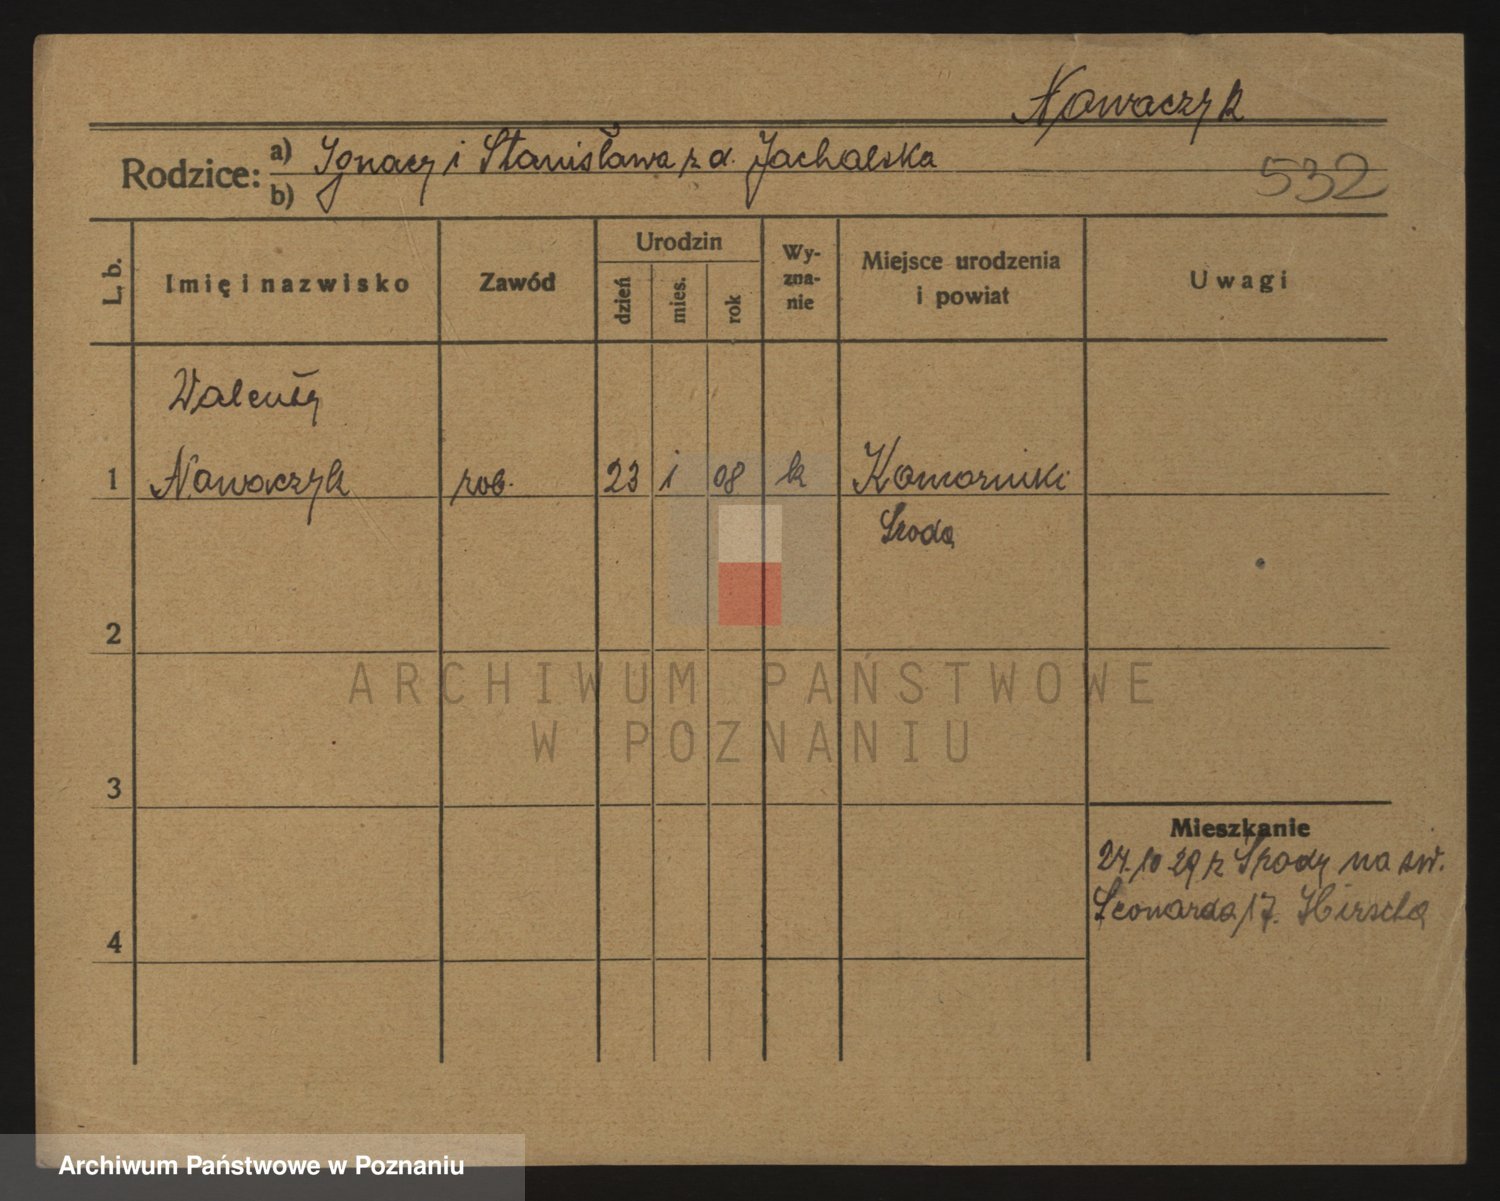 Nowaczyk
Rodzice: a) Ignacy i Stanisława z d. Jachalska
b)
532
L. b.
Imię i nazwisko
Zawód
Urodzin
dzień
mies.
rok
Wy-
zna-
nie
Miejsce urodzenia
i powiat
Uwagi
Walenty
1 Nowaczyk rob. 23 i 08 k Komorniki
Środa
2
ARCHIWUM PAŃSTWOWE
W POZNANIU
3
Mieszkanie
27.10 29 z Środy na św.
Leonarda 17. Hirscha
4
Archiwum Państwowe w Poznaniu